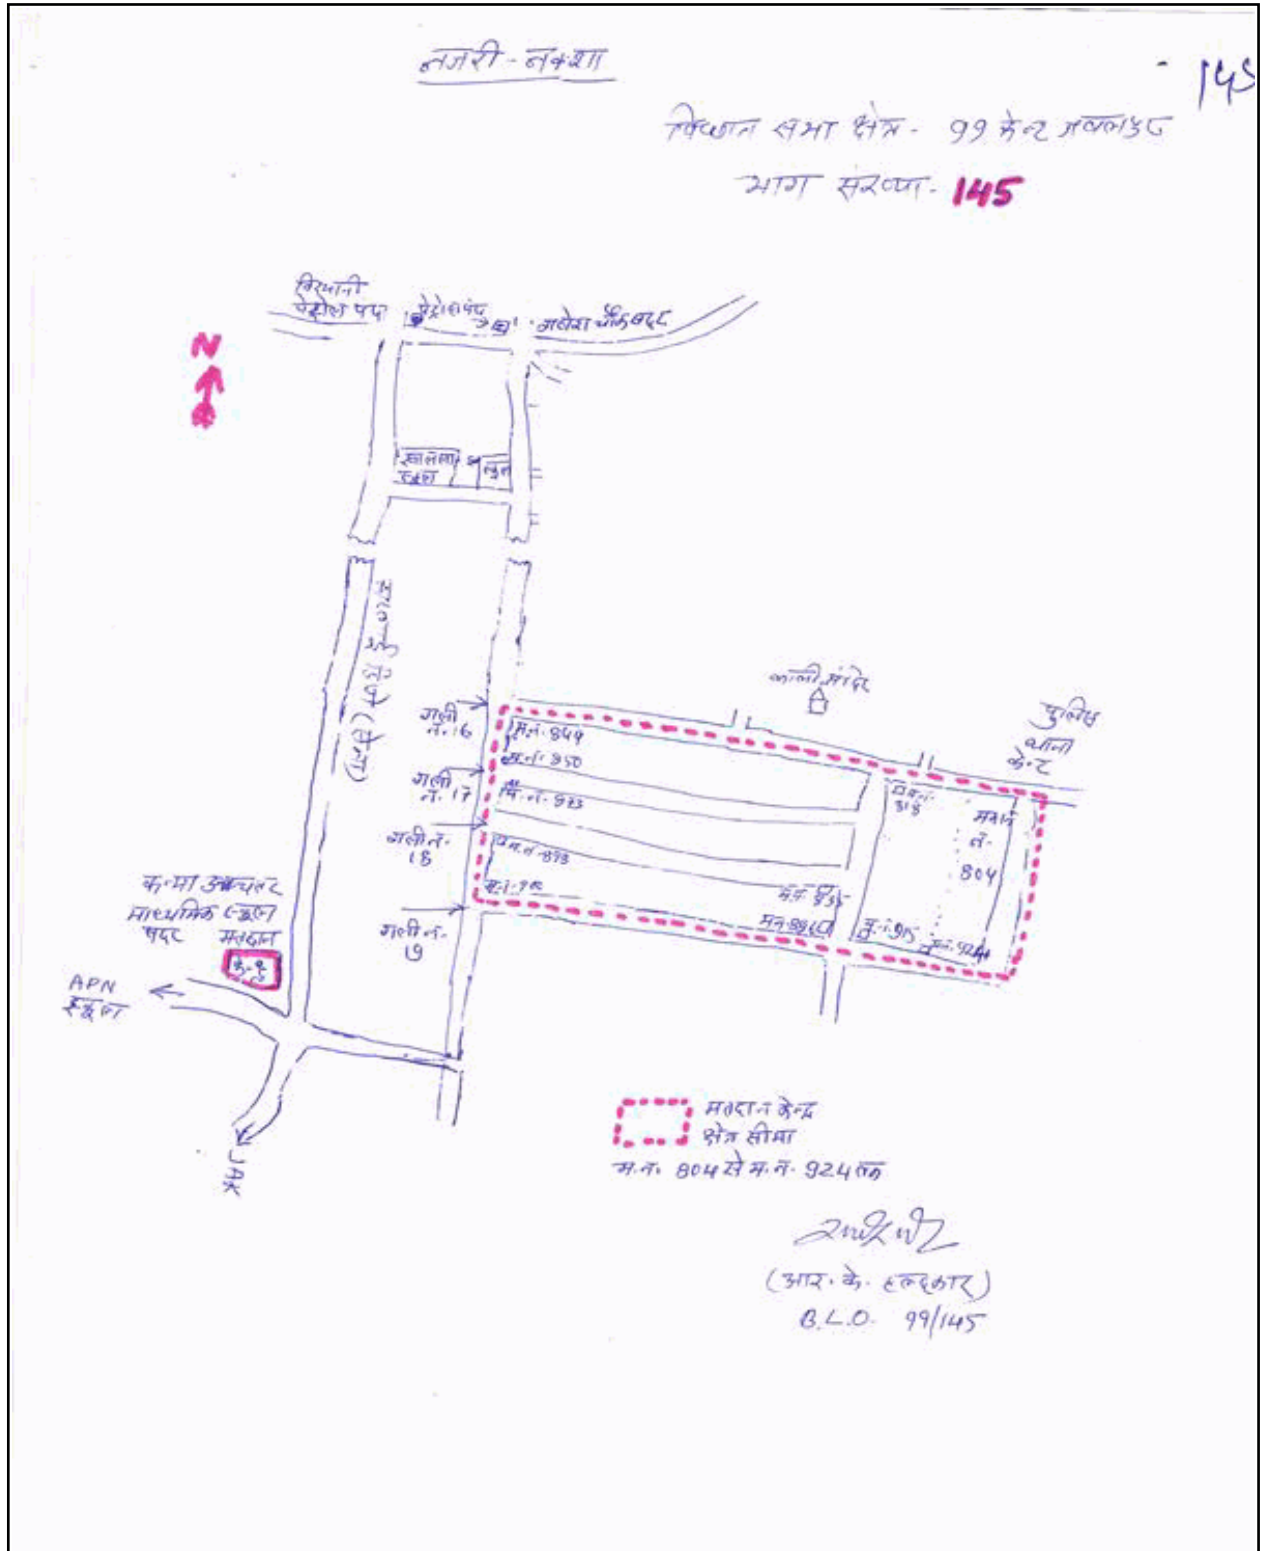 नजरी-नक्शा
145
विधान सभा क्षेत्र - 99 केन्ट जबलपुर
भाग संख्या - 145
पेट्रोल पंप
पेट्रोल पंप
गणेश चौक सदर
N
खालसा
स्कूल
स्कूल
काली मंदिर
पुलिस
थाना
केन्ट
गली
नं. 16
गली
नं. 17
गली नं.
18
गली नं.
19
म.नं. 849
म.नं. 850
म.नं. 873
म.नं. 893
म.नं.
818
मकान
नं.
804
म.नं. 915
म.नं. 924
कन्या उच्चतर
माध्यमिक स्कूल
सदर मतदान
APN
स्कूल
JAK
मतदान केन्द्र
क्षेत्र सीमा
म.नं. 804 से म.नं. 924 तक
(आर. के. हल्दकार)
B.L.O. 99/145